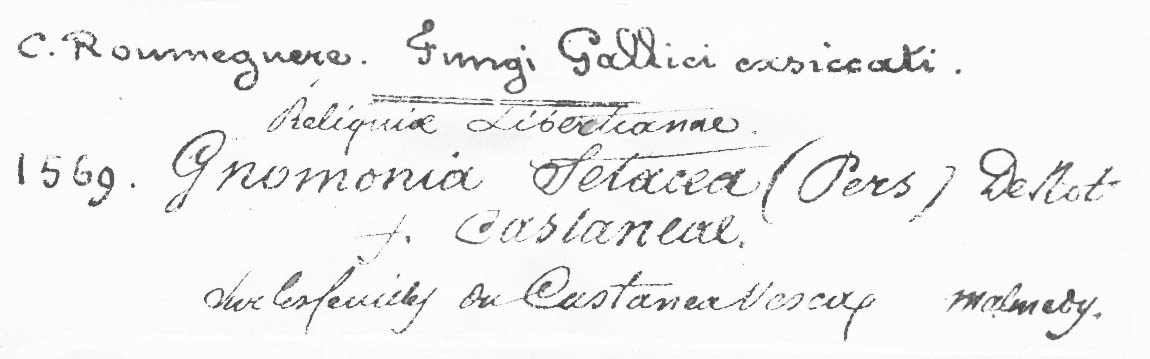 C. Roumeguere. Fungi Gallici exsiccati.
Reliquiæ Libertianae.
1569. Gnomonia Setacea (Pers) DeNot
f. Castaneae.
Sur les feuilles du Castanea Vesca, Malmedy.